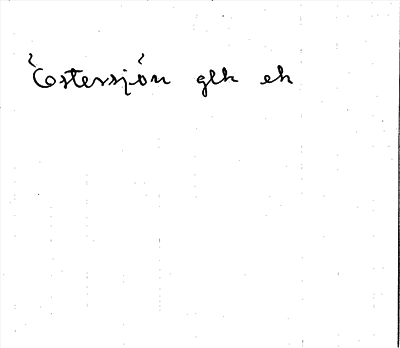 Éstersjón glh eh